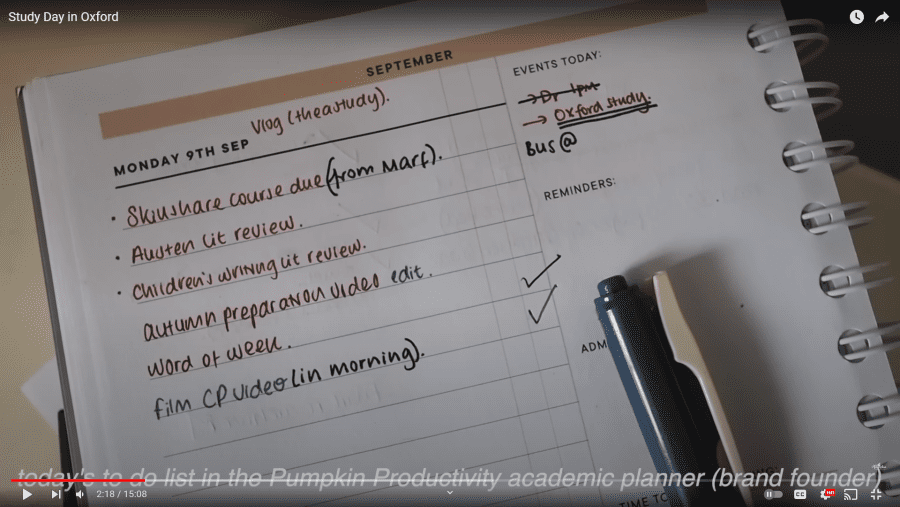 Study Day in Oxford
SEPTEMBER
EVENTS TODAY:
→ Dr 1pm
→ Oxford study.
BUS @
Vlog (theastudy).
MONDAY 9TH SEP
• Skillshare course due (from Marf).
• Austen lit review.
• Children's writing lit review.
autumn preparation video edit.
word of week.
film CP video (in morning).
REMINDERS:
ADM
TIME TO
today's to do list in the Pumpkin Productivity academic planner (brand founder)
2:18 / 15:08
CC
HD